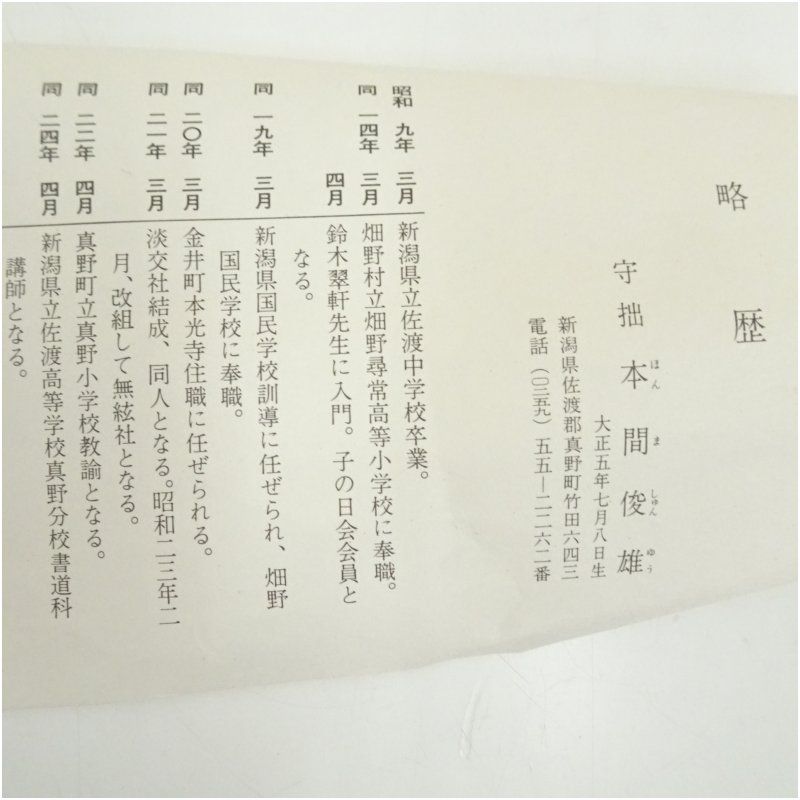 略歴
守拙 本間俊雄
ほんましゅんゆう
大正五年七月八日生
新潟県佐渡郡真野町竹田六四三
電話(〇二五九)五五―二二六二番
昭和 九年 三月 新潟県立佐渡中学校卒業。
同 一四年 三月 畑野村立畑野尋常高等小学校に奉職。
四月 鈴木翠軒先生に入門。子の日会会員と
なる。
同 一九年 三月 新潟県国民学校訓導に任ぜられ、畑野
国民学校に奉職。
同 二〇年 三月 金井町本光寺住職に任ぜられる。
同 二一年 三月 淡交社結成、同人となる。昭和二三年二
月、改組して無絃社となる。
同 二二年 四月 真野町立真野小学校教諭となる。
同 二四年 四月 新潟県立佐渡高等学校真野分校書道科
講師となる。